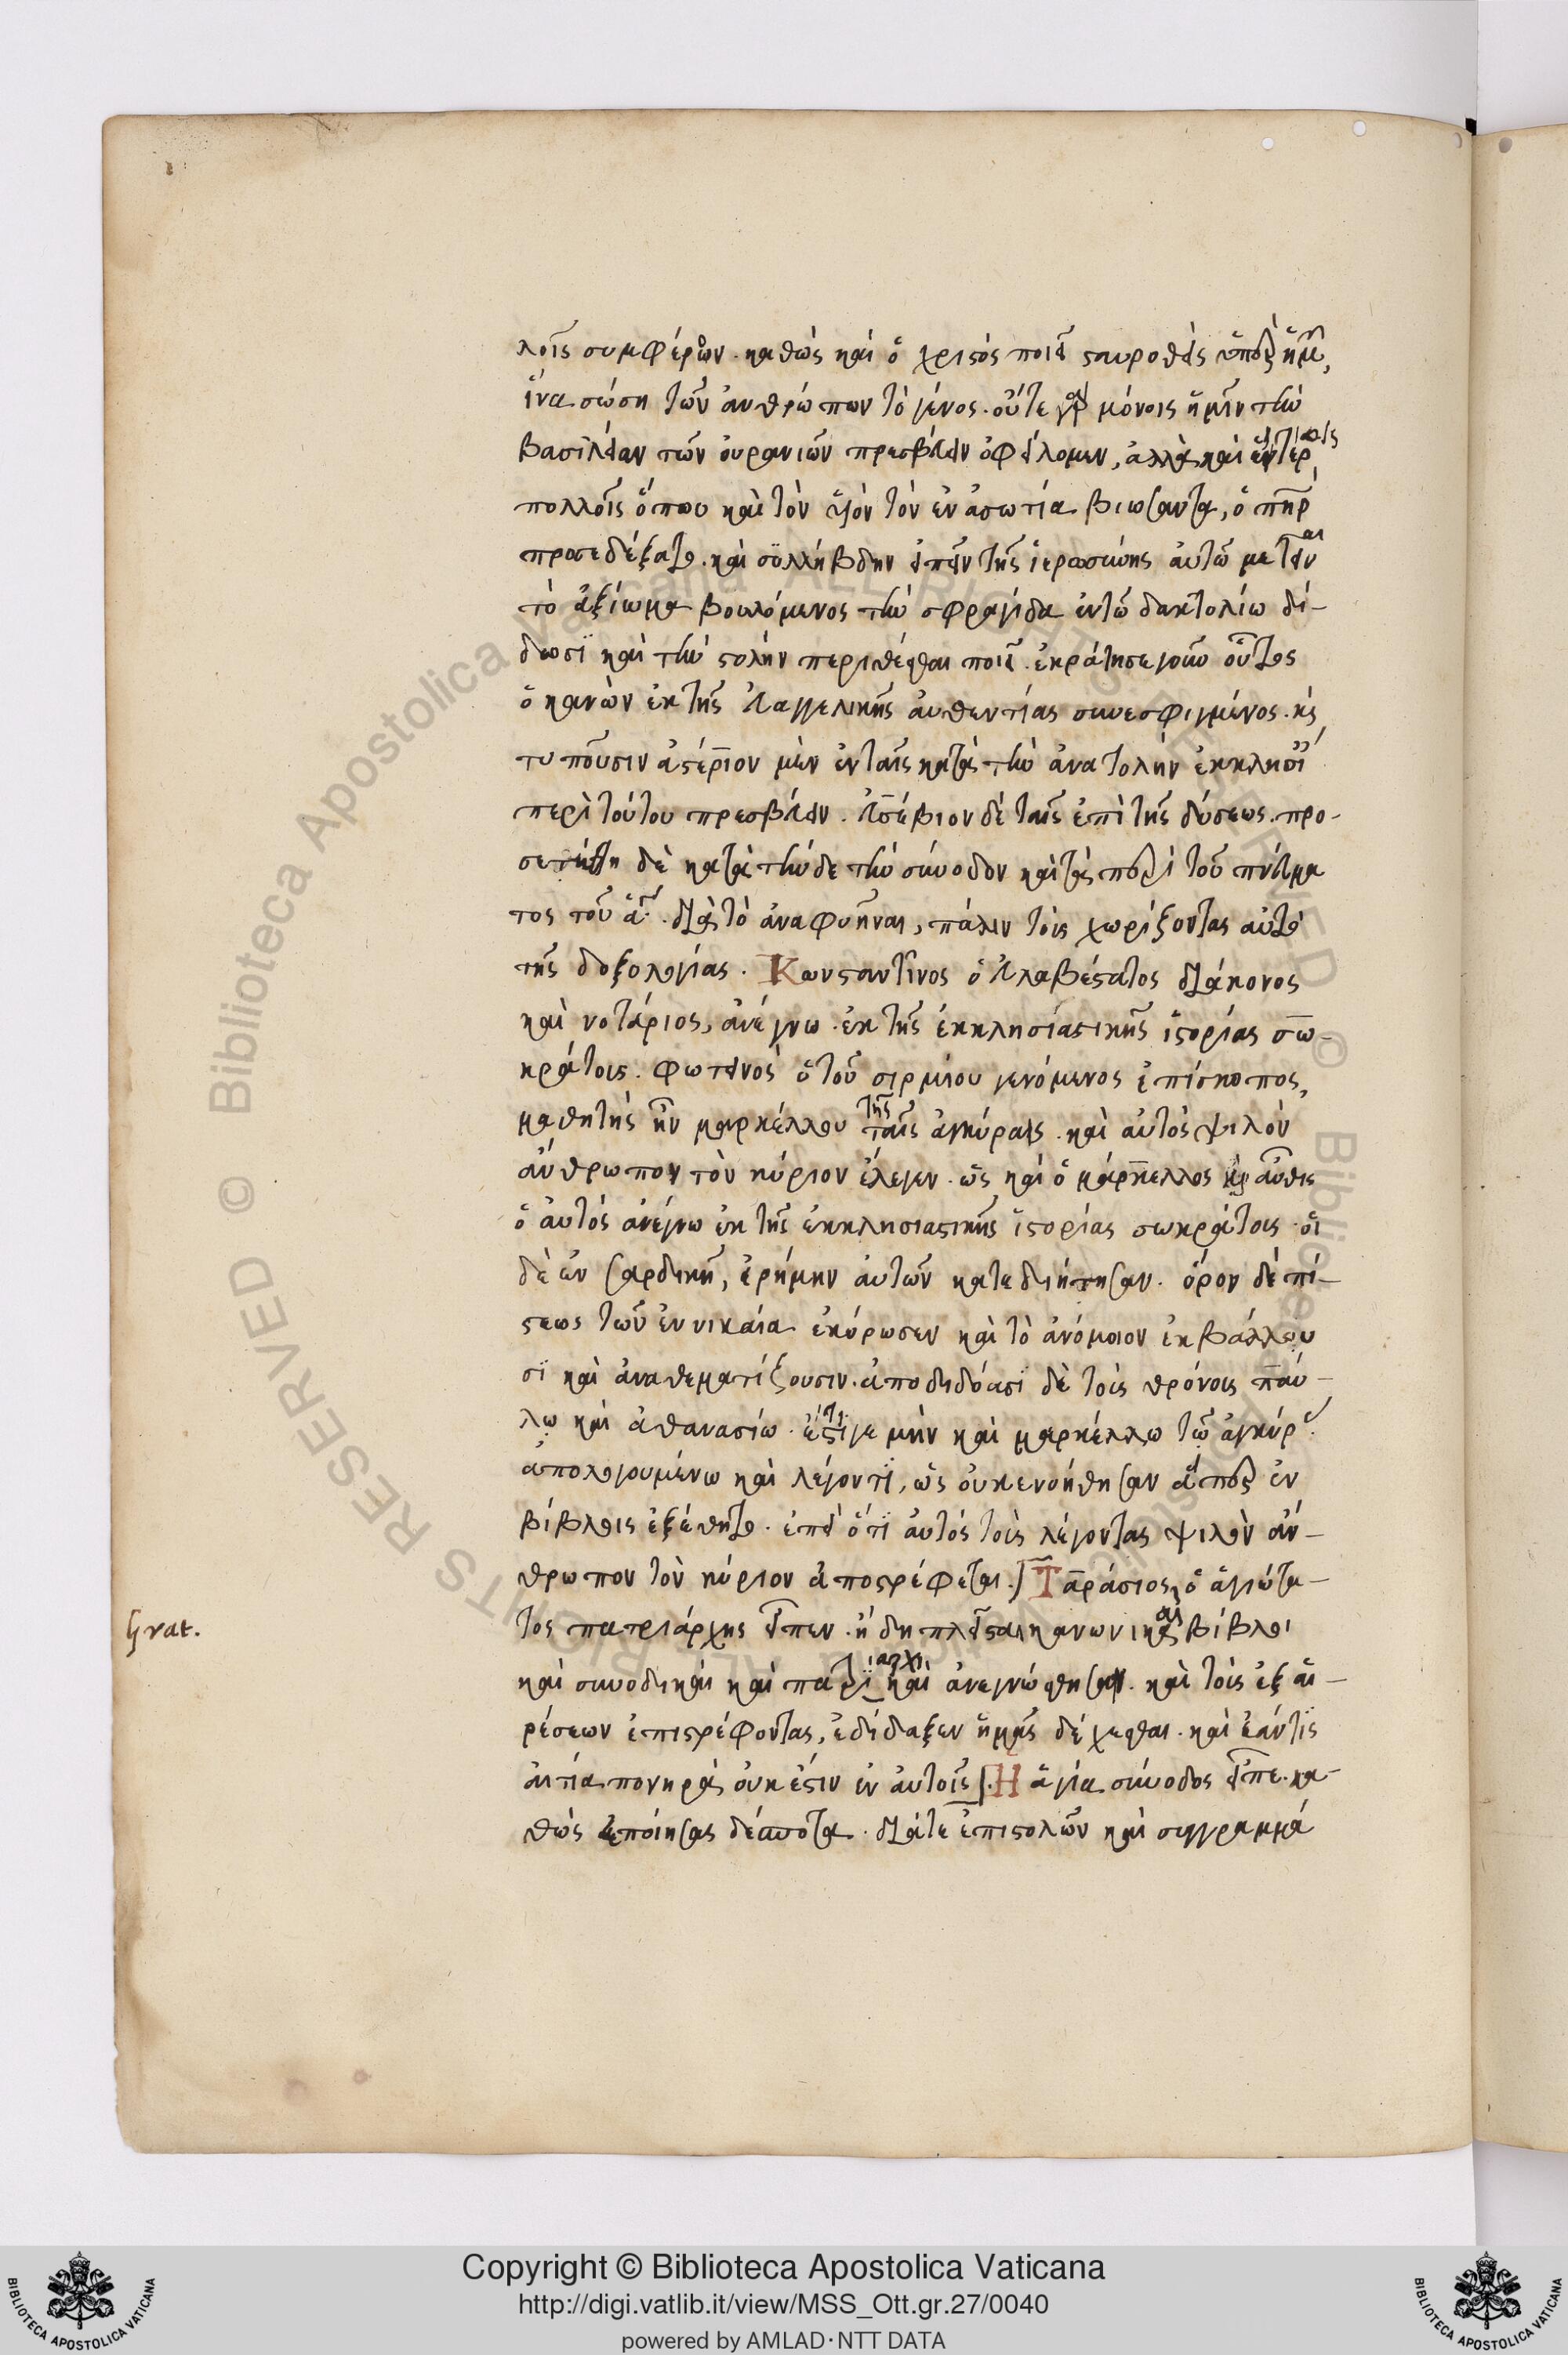 λοῖς συμφέρων. καθὼς καὶ ὁ χριστὸς ποιεῖ σταυρωθεὶς ὑπὲρ ἡμῶν,
ἵνα σώση τῶν ἀνθρώπων τὸ γένος. οὔτε γὰρ μόνοις ἡμῖν τὴν
βασιλείαν τῶν οὐρανιῶν πρεσβεύειν ὀφείλομεν, ἀλλὰ καὶ
πολλοῖς ὅπου καὶ τὸν υἱὸν τὸν ἐν ἀσωτία βιωσαντα, ὁ πηρ
προσεδέξατο. καὶ συλλήβδην εἰπεῖν τῆς ἱερωσύνης αὐτῶ
τὸ ἀξίωμα βουλόμενος τὴν σφραγίδα ἐν τῶ δακτυλίω δί-
δωσϊ καὶ τὴν στολὴν περιθέσθαι ποιεῖ. ἐκράτησε γοῦν οὗτος
ὁ κανὼν ἐκ τῆς εὐαγγελικῆς αὐθεντίας συνεσφιγμένος. κς
τυποῦσιν ἀστέριον μὲν ἐν ταῖς κατὰ τὴν ἀνατολὴν ἐκκλησΐ
περὶ τούτου πρεσβεύειν. εὐσέβιον δὲ ταῖς ἐπὶ τῆς δύσεως. προ-
σετέθη δὲ κατὰ τήνδε τὴν σύνοδον καὶ τὰ περὶ τοῦ πνεύμα
τος τοῦ ἁγ. διὰ τὸ ἀναφυῆναι, πάλιν τοὺς χωρίζοντας αὐτὸ
τῆς δοξολογίας. Κωνσταντῖνος ὁ εὐλαβέστατος διάκονος
καὶ νοτάριος, ἀνέγνω. ἐκ τῆς ἐκκλησϊαστικῆς ἱστορίας σω-
κράτους. φωτεινὸς ὁ τοῦ σιρμίου γενόμενος ἐπίσκοπος,
μαθητὴς ἦν μαρκέλλου ταῖς τῆς ἀγκύραις. καὶ αὐτὸς ψιλὸν
ἄνθρωπον τὸν κύριον ἔλεγεν. ὡς καὶ ὁ μάρκελλος καὶ αὖθις
ὁ αὐτὸς ἀνέγνω ἐκ τῆς ἐκκλησιαστικῆς ἱστορίας σωκράτους. οἱ
δὲ ἐν σαρδικῆ, ἐρήμην αὐτῶν κατεδιήτησαν. ὅρον δὲ πί-
στεως τῶν ἐν νικαία ἐκύρωσεν καὶ τὸ ἀνόμοιον ἐκβάλλου
σϊ καὶ ἀναθεματίζουσιν. ἀποδιδόασϊ δὲ τοὺς θρόνους παύ-
λω καὶ ἀθανασίω. ἔτι γε μὴν καὶ μαρκέλλω τῶ ἀγκύρ
ἀπολογουμένω καὶ λέγοντϊ, ὡς οὐκ ἐνοήθησαν ἅπερ ἐν
βίβλοις ἐξέθετο. ἐπεὶ ὅτϊ αὐτὸς τοὺς λέγοντας ψιλὸν ἄν-
θρωπον τὸν κύριον ἀποστρέφεται. Ταράσιος ὁ ἁγιώτα-
τος πατριάρχης εἶπεν. ἤδη πλεῖσται κανωνικαὶ βίβλοι
καὶ συνοδικαὶ καὶ πατριαρχικαὶ ἀνεγνώσθησαν. καὶ τοὺς ἐξ αἱ-
ρέσεων ἐπιστρέφοντας, ἐδίδαξεν ἡμᾶς δέχεσθαι. καὶ ἐάν τϊς
αἰτία πονηρὰ οὐκ ἔστιν ἐν αὐτοῖς. Ἡ ἁγία σύνοδος εἶπε. κα-
θὼς ἐποίησας δέσποτα. διά τε ἐπιστολῶν καὶ συγγραμμά
Grat.
Copyright © Biblioteca Apostolica Vaticana
http://digi.vatlib.it/view/MSS_Ott.gr.27/0040
powered by AMLAD·NTT DATA
BIBLIOTECA APOSTOLICA VATICANA
BIBLIOTECA APOSTOLICA VATICANA